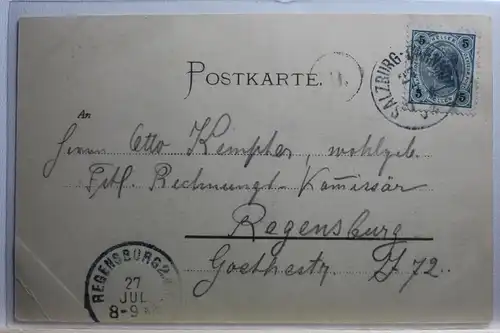 POSTKARTE.
SALZBURG-
HELLER
5 5
An
Herrn Otto Kempter, wohlgeb.
Rechnungs-Komissär
Regensburg
Goethestr.
REGENSBURG 2.
27
JUL
8-9